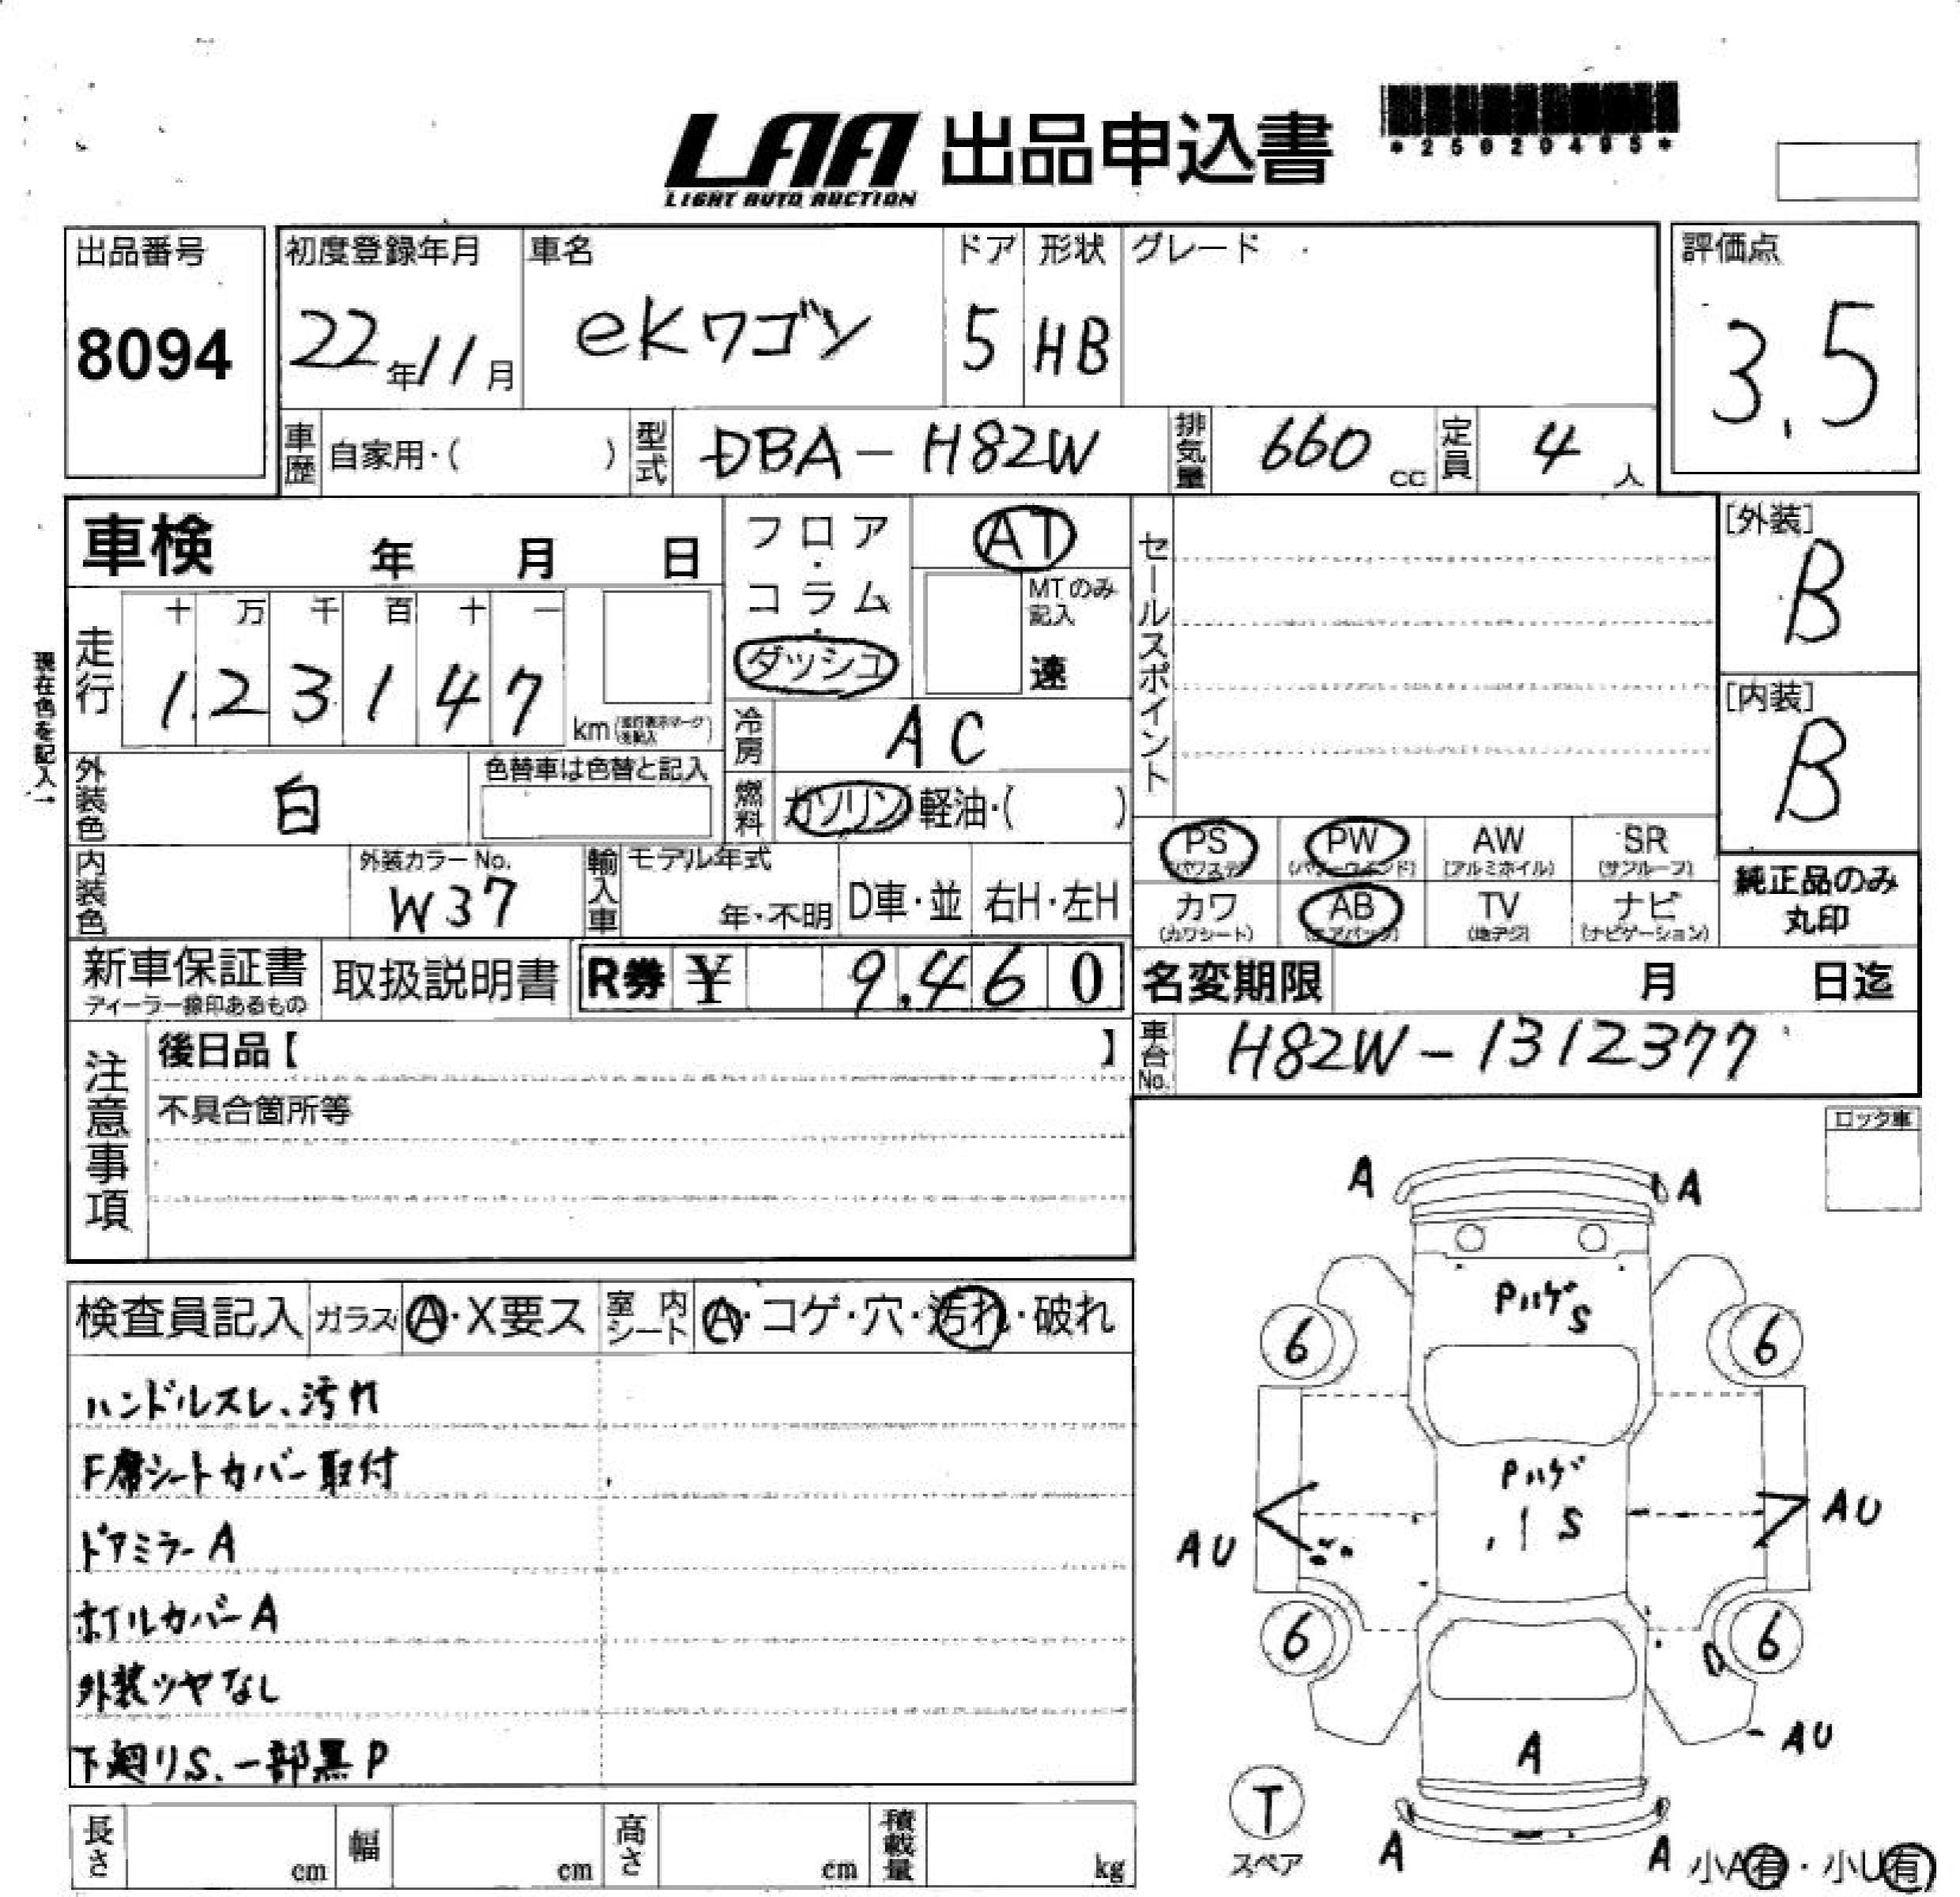 LAA 出品申込書
LIGHT AUTO AUCTION
*25020495*
出品番号
8094
初度登録年月
22年11月
車名
ekワゴン
ドア
5
形状
HB
グレード
評価点
3.5
車歴
自家用・( )
型式
DBA-H82W
排気量
660 cc
定員
4 人
車検 年 月 日
フロア・コラム・ダッシュ
AT
MTのみ記入
速
セールスポイント
[外装]
B
[内装]
B
現在色を記入→
走行
十 万 千 百 十 一
1 2 3 1 4 7 km
冷房
AC
外装色
白
色替車は色替と記入
燃料
ガソリン・軽油・( )
PS
(パワステ)
PW
(パワーウインド)
AW
(アルミホイル)
SR
(サンルーフ)
カワ
(カワシート)
AB
(エアバック)
TV
(地デジ)
ナビ
(ナビゲーション)
純正品のみ
丸印
内装色
外装カラーNo.
W37
輸入車
モデル年式
年・不明
D車・並
右H・左H
新車保証書
ディーラー捺印あるもの
取扱説明書
R券 ¥ 9,460
名変期限 月 日迄
車台No.
H82W-1312377
注意事項
後日品【 】
不具合箇所等
ロック車
検査員記入
ガラス
A・X要ス
室内シート
A・コゲ・穴・汚れ・破れ
ハンドルスレ、汚れ
F席シートカバー取付
ドアミラーA
ホイルカバーA
外装ツヤなし
下廻りS、一部黒P
A
A
Pハゲ
S
6
6
Pハゲ
S
AU
AU
6
6
AU
A
T
スペア
A
A
小A有・小U有
長さ cm
幅 cm
高さ cm
積載量 kg